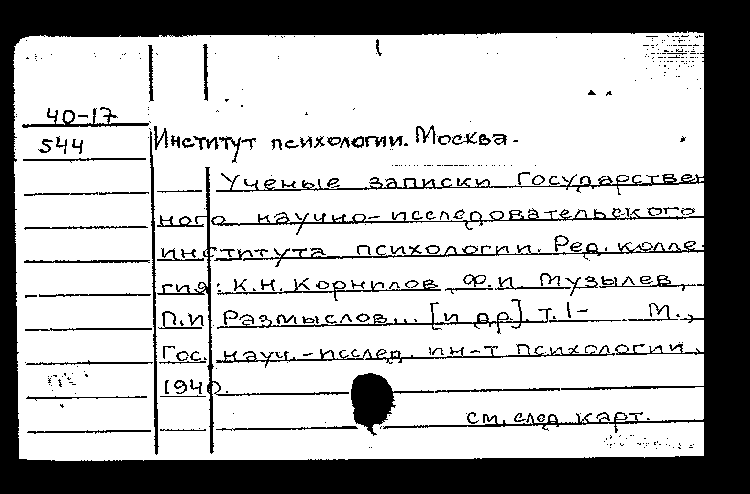 40-17
544
Институт психологии. Москва.
Ученые записки Государствен
ного научно-исследовательского
института психологии. Ред. колле-
гия: К.Н. Корнилов, Ф.И. Музылев,
П.И. Размыслов... [и др]. т. 1- М.,
Гос. науч.-исслед. ин-т психологии,
1940.
см. след карт.